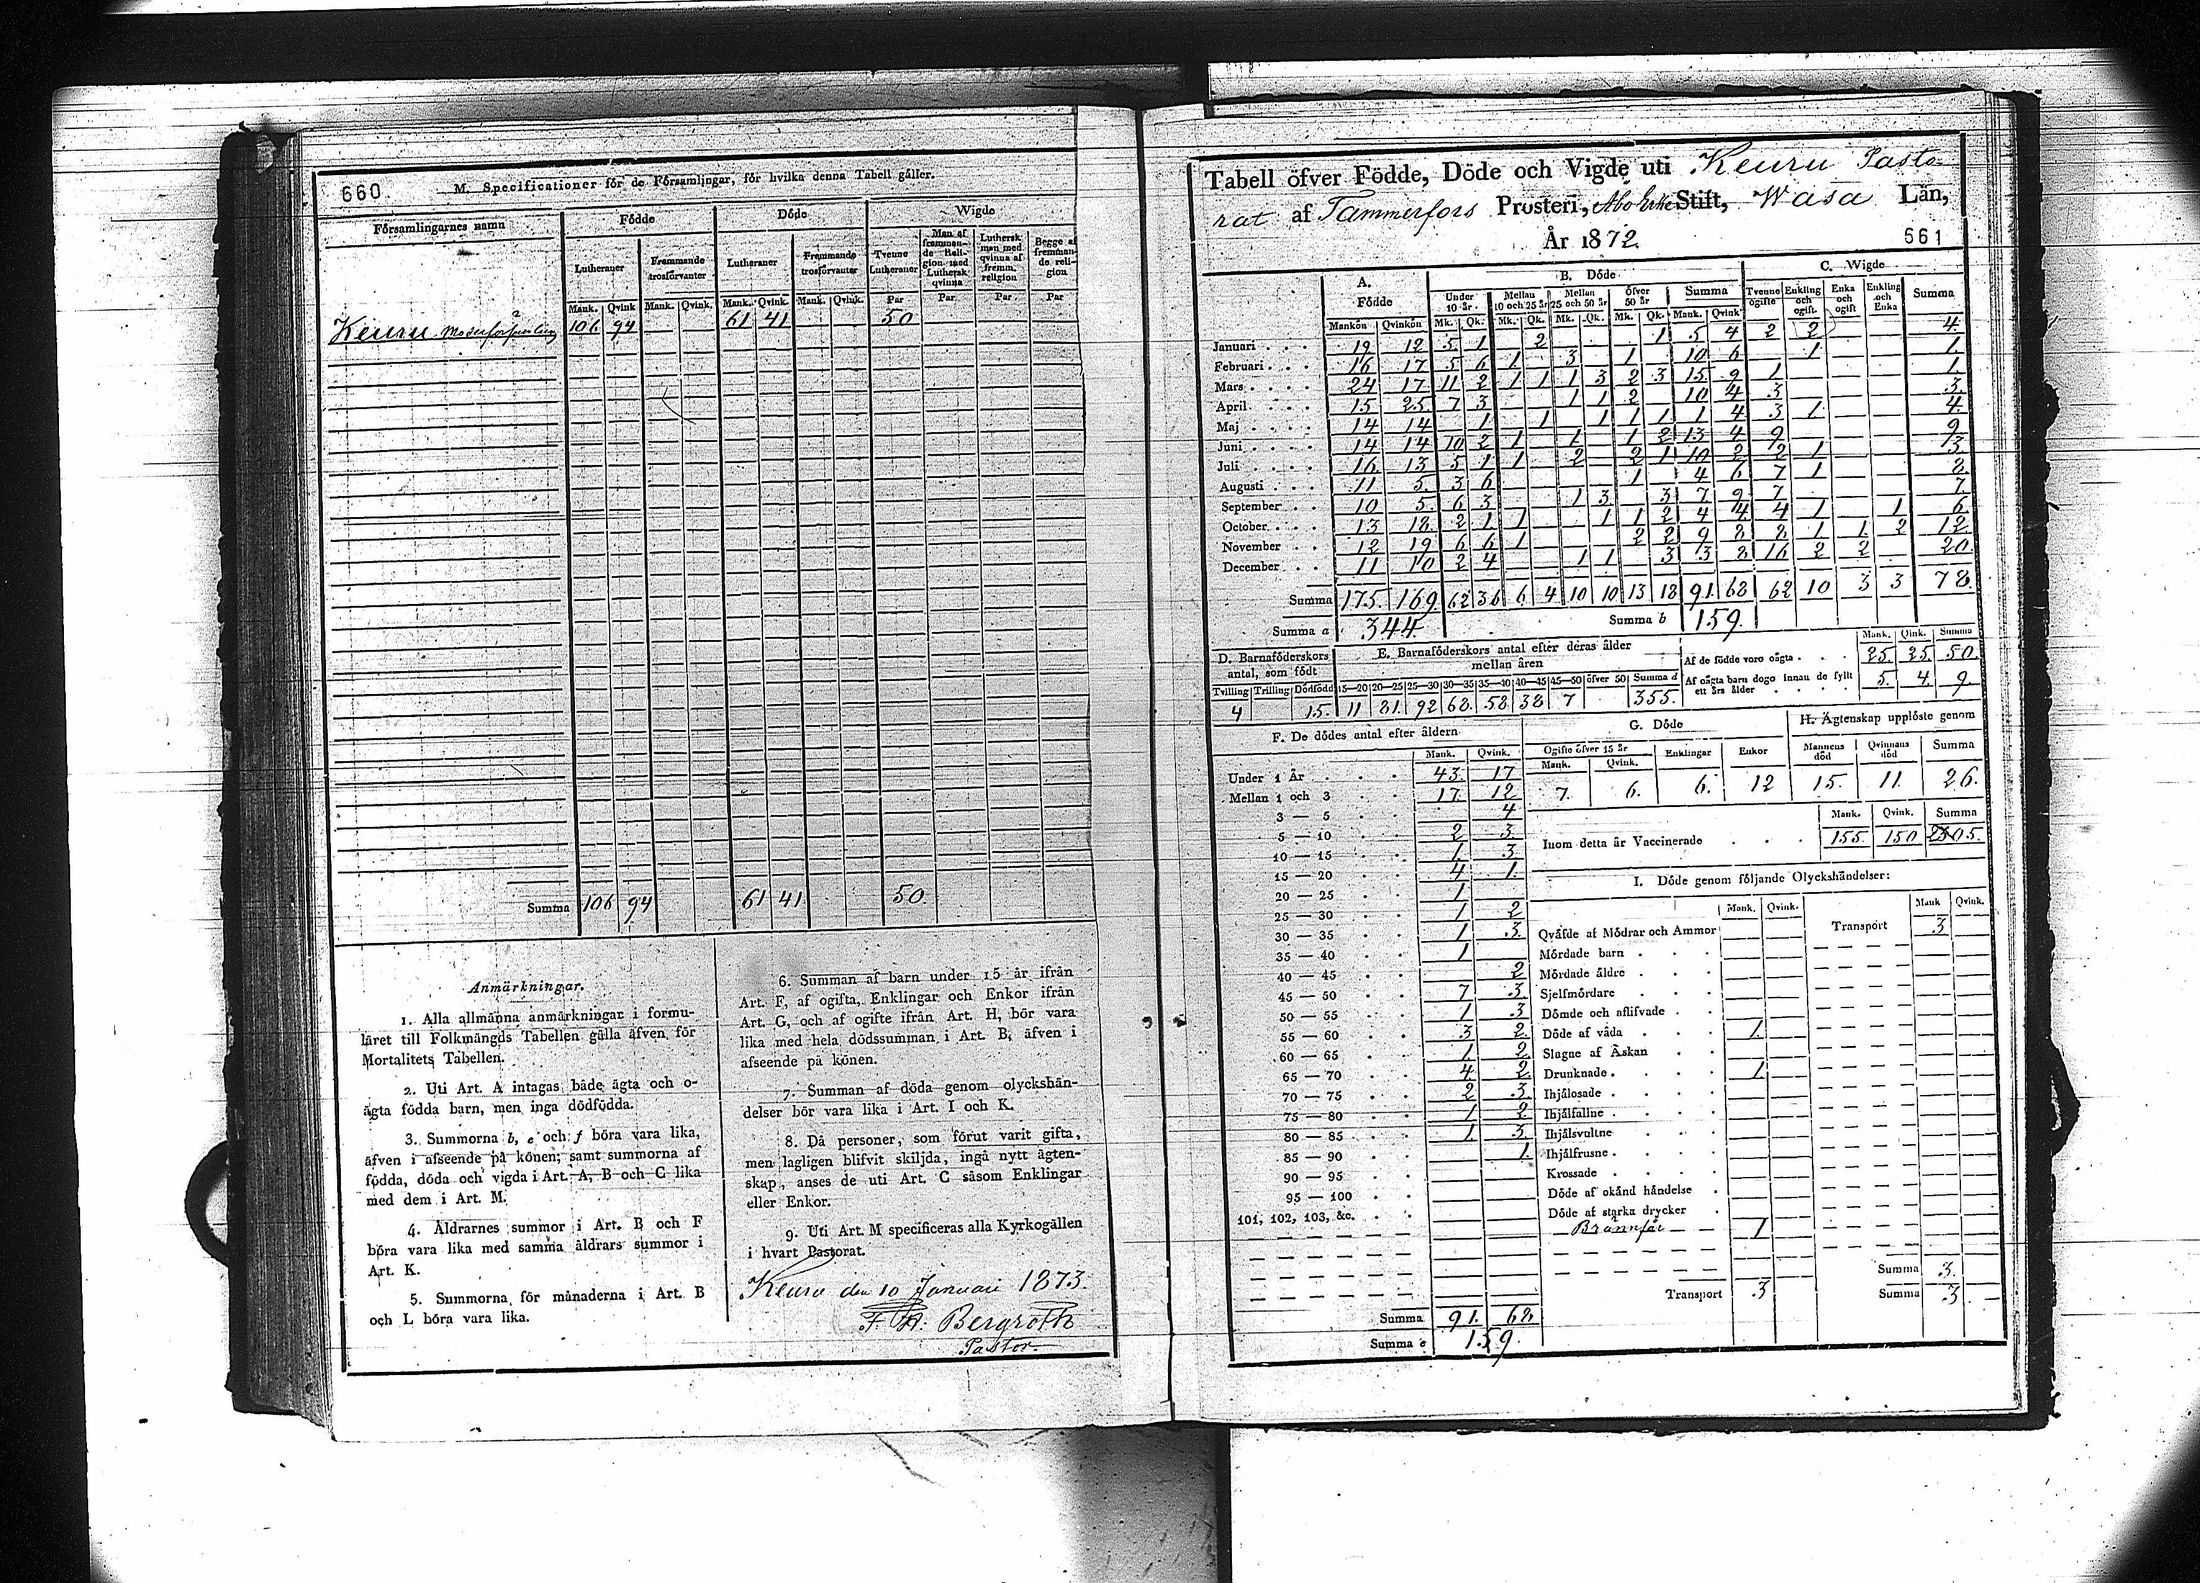 660.
M. Specificationer för de Församlingar, för hvilka denna Tabell gäller.
Församlingarnes namn
Födde
Döde
Wigde
Lutheraner
Fremmande trosförvanter
Lutheraner
Fremmande trosförvanter
Tvenne Lutheraner
Man af fremmande Religion med Luthersk qvinna
Luthersk man med qvinna af fremm. religion
Begge af fremmande religion
Mank. Qvink Mank. Qvink. Mank. Qvink. Mank. Qvink. Par Par Par Par
Keuru Moderförsamling 106 94 61 41 50
Summa 106 94 61 41 50.
Anmärkningar.
1. Alla allmänna anmärkningar i formu-
läret till Folkmängds Tabellen gälla äfven för
Mortalitets Tabellen.
2. Uti Art. A intagas både ägta och o-
ägta födda barn, men inga dödfödda.
3. Summorna b, e och f böra vara lika,
äfven i afseende på könen; samt summorna af
födda, döda och vigda i Art. A, B och C lika
med dem i Art. M.
4. Äldrarnes summor i Art. B och F
böra vara lika med samma äldrars summor i
Art. K.
5. Summorna för månaderna i Art. B
och L böra vara lika.
6. Summan af barn under 15 år ifrån
Art. F, af ogifta, Enklingar och Enkor ifrån
Art. G, och af ogifte ifrån Art. H, bör vara
lika med hela dödssumman i Art. B, äfven i
afseende på könen.
7. Summan af döda genom olyckshän-
delser bör vara lika i Art. I och K.
8. Då personer, som förut varit gifta,
men lagligen blifvit skiljda, ingå nytt ägten-
skap, anses de uti Art. C såsom Enklingar
eller Enkor.
9. Uti Art. M specificeras alla Kyrkogällen
i hvart Pastorat.
Keuru den 10 Januari 1873.
F. A. Bergroth
Pastor
Tabell öfver Födde, Döde och Vigde uti Keuru Pasto-
rat af Tammerfors Prosteri, Åbo Erke Stift, Wasa Län,
År 1872.
661
A. Födde
B. Döde
C. Wigde
Under 10 år
Mellan 10 och 25 år
Mellan 25 och 50 år
Öfver 50 år
Summa
Tvenne ogifte
Enkling och ogift.
Enka och ogift
Enkling och Enka
Summa
Mankön Qvinkön Mk. Qk. Mk. Qk. Mk. Qk. Mk. Qk. Mank. Qvink
Januari 19 12 5 1 2 1 5 4 2 2 4
Februari 16 17 5 6 1 3 1 10 6 1 1
Mars 24 17 11 2 1 1 1 3 2 3 15 9 1 1
April 15 25 7 3 1 1 2 10 4 3 3
Maj 14 14 1 1 1 1 1 1 4 3 1 4
Juni 14 14 10 2 1 1 1 2 13 4 9 9
Juli 16 13 5 1 1 2 2 1 10 2 1 13
Augusti 11 5 3 6 1 4 6 7 1 8
September 10 5 6 3 1 3 3 7 9 7 7
October 13 18 2 1 1 1 1 2 4 4 4 1 1 6
November 12 19 6 6 1 2 2 9 8 8 1 1 2 12
December 11 10 2 4 1 1 3 3 8 16 2 2 20
Summa 175 169 62 36 6 4 10 10 13 18 91 68 62 10 3 3 78
Summa a 344
Summa b 159.
D. Barnaföderskors antal, som födt
Tvilling Trilling Dödfödd
4 15.
E. Barnaföderskors antal efter deras ålder
mellan åren
15—20 20—25 25—30 30—35 35—40 40—45 45—50 öfver 50 Summa d
11 81 92 68 58 38 7 355.
Mank. Qink. Summa
Af de födde voro oägta 25. 25. 50
Af oägta barn dogo innan de fyllt
ett års ålder 5 4 9.
F. De dödes antal efter åldern
Mank. Qvink.
Under 1 År 43 17
Mellan 1 och 3 17 12
3 — 5 4
5 — 10 2 3
10 — 15 1 3
15 — 20 4 1
20 — 25 1
25 — 30 1 2
30 — 35 1 3
35 — 40 1
40 — 45 2
45 — 50 7 3
50 — 55 1 3
55 — 60 3 2
60 — 65 1 2
65 — 70 4 2
70 — 75 2 3
75 — 80 1 2
80 — 85 1 3
85 — 90 1
90 — 95
95 — 100
101, 102, 103, &c.
Summa 91. 68
Summa e 159.
G. Döde
Ogifte öfver 15 år
Mank. Qvink.
Enklingar
Enkor
7. 6. 6. 12
H. Ägtenskap upplöste genom
Mannens död
Qvinnans död
Summa
15. 11. 26.
Mank. Qvink. Summa
Inom detta år Vaccinerade 155 150
I. Döde genom följande Olyckshändelser:
Mank. Qvink. Mank Qvink.
Qväfde af Mödrar och Ammor
Mördade barn
Mördade äldre
Sjelfmördare
Dömde och aflifvade
Döde af våda 1.
Slagne af Åskan
Drunknade 1
Ihjälosade
Ihjälfallne
Ihjälsvultne
Ihjälfrusne
Krossade
Döde af okänd händelse
Döde af starka drycker
1
Transport 3
Transport 3
Summa 3.
Summa 3.